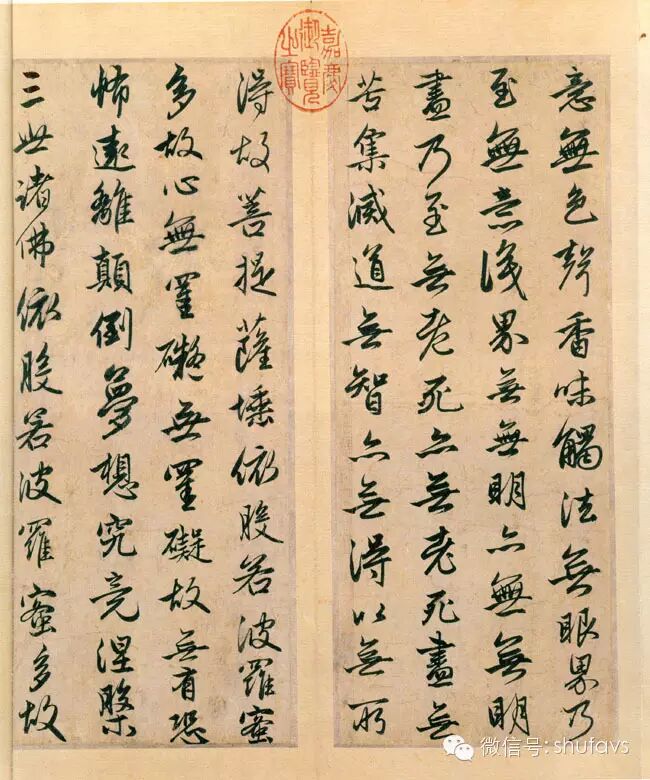 嘉慶
御覽
之寶
意無色聲香味觸法無眼界乃
至無意識界無無明亦無無明
盡乃至無老死亦無老死盡無
苦集滅道無智亦無得以無所
得故菩提薩埵依般若波羅蜜
多故心無罣礙無罣礙故無有恐
怖遠離顛倒夢想究竟涅槃
三世諸佛依般若波羅蜜多故
微信号: shufavs